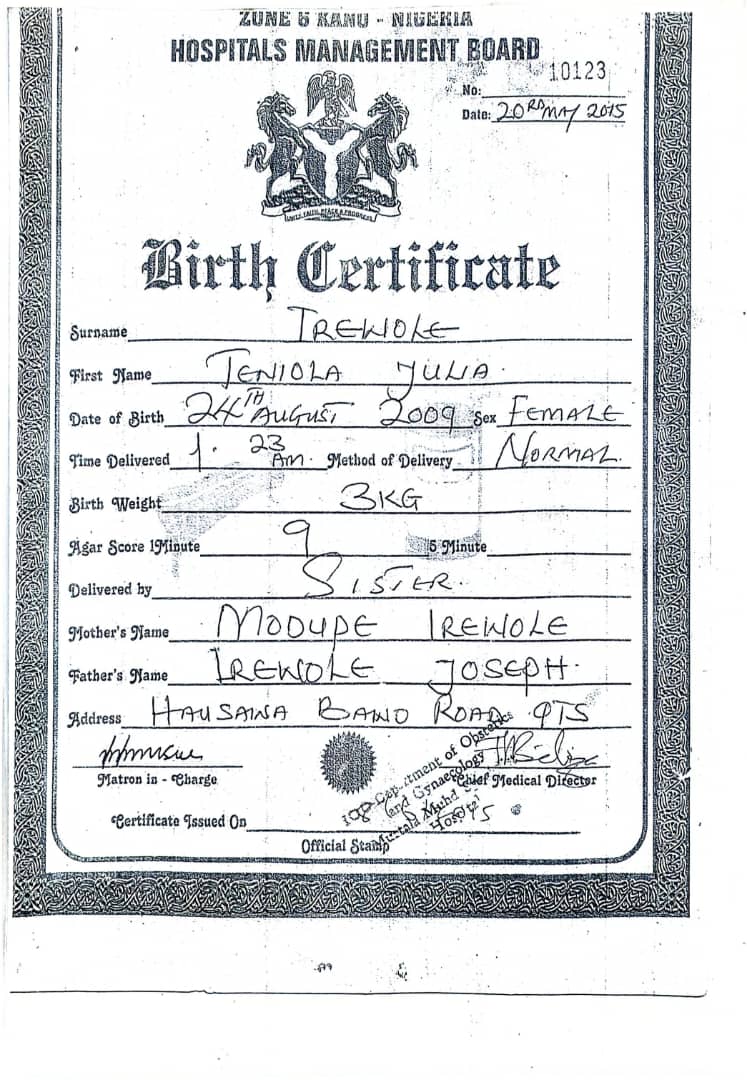 ZONE 6 KANO - NIGERIA
HOSPITALS MANAGEMENT BOARD
No: 10123
Date: 20RD MAY 2015
UNITY, FAITH, PEACE & PROGRESS
Birth Certificate
Surname IREWOLE
First Name TENIOLA JULIA
Date of Birth 24TH AUGUST 2009 Sex FEMALE
Time Delivered 1.23 AM. Method of Delivery NORMAL.
Birth Weight 3KG
Agar Score 1Minute 9 5 Minute
Delivered by SISTER.
Mother's Name MODUPE IREWOLE
Father's Name IREWOLE JOSEPH.
Address HAUSAWA BAND ROAD QTS
Matron in - Charge
Chief Medical Director
Department of Obstetrics
and Gynaecology
Murtala Muhd
Hospital
Certificate Issued On
Official Stamp